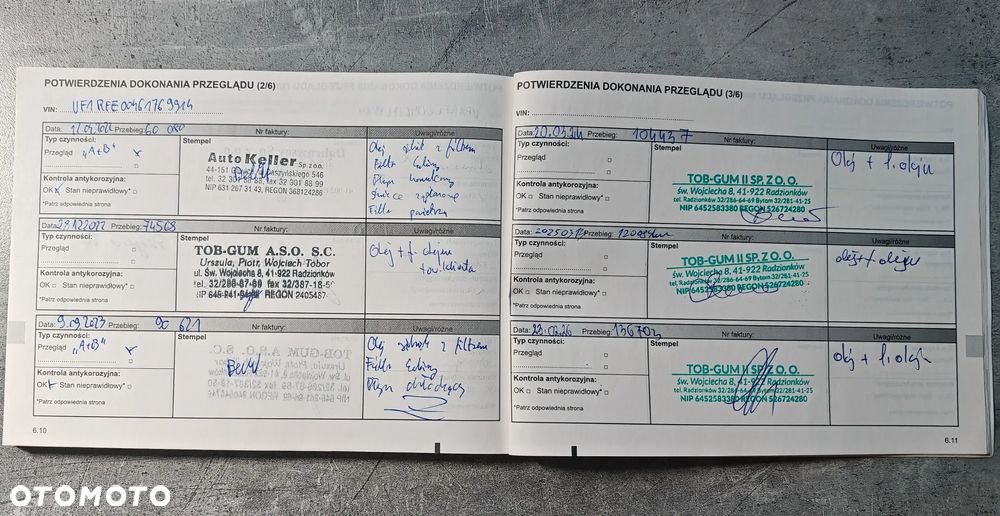 POTWIERDZENIA DOKONANIA PRZEGLĄDU (2/6)
VIN: VF1RFE00461769914
Data: 12.01.2022 Przebieg: 60 080 Nr faktury: Uwagi/różne
Typ czynności:
Przegląd "A+B" x
Kontrola antykorozyjna:
OK x Stan nieprawidłowy*
*Patrz odpowiednia strona
Stempel
Auto Keller Sp. z o.o.
NIP 631 267 31 43, REGON 368124286
Olej silnik z filtrem
Filtr kabiny
Płyn hamulcowy
Świece zapłonowe
Filtr powietrza
Data: 29.12.2022 Przebieg: 74568 Nr faktury: Uwagi/różne
Typ czynności:
Przegląd
Kontrola antykorozyjna:
OK Stan nieprawidłowy*
*Patrz odpowiednia strona
Stempel
TOB-GUM A.S.O. S.C.
Urszula, Piotr, Wojciech Tobor
ul. Św. Wojciecha 8, 41-922 Radzionków
tel. 32/286-67-69 fax 32/387-18-50
Olej + f. oleju
tow. klienta
Data: 9.09.2023 Przebieg: 90 621 Nr faktury: Uwagi/różne
Typ czynności:
Przegląd "A+B" x
Kontrola antykorozyjna:
OK Stan nieprawidłowy*
*Patrz odpowiednia strona
Stempel
TOB-GUM A.S.O. S.C.
Olej silnik z filtrem
Filtr kabiny
Płyn chłodzący
6.10
POTWIERDZENIA DOKONANIA PRZEGLĄDU (3/6)
VIN:
Data: 20.03.24 Przebieg: 104437 Nr faktury: Uwagi/różne
Typ czynności:
Przegląd
Kontrola antykorozyjna:
OK Stan nieprawidłowy*
*Patrz odpowiednia strona
Stempel
TOB-GUM II SP. Z O. O.
św. Wojciecha 8, 41-922 Radzionków
tel. Radzionków 32/286-64-69 Bytom 32/281-41-25
NIP 6452583380 REGON 526724280
Olej + f. oleju
Data: Przebieg: Nr faktury: Uwagi/różne
Typ czynności:
Przegląd
Kontrola antykorozyjna:
OK Stan nieprawidłowy*
*Patrz odpowiednia strona
Stempel
TOB-GUM II SP. Z O. O.
św. Wojciecha 8, 41-922 Radzionków
tel. Radzionków 32/286-64-69 Bytom 32/281-41-25
NIP 6452583380 REGON 526724280
olej + f. oleju
Data: Przebieg: Nr faktury: Uwagi/różne
Typ czynności:
Przegląd
Kontrola antykorozyjna:
OK Stan nieprawidłowy*
*Patrz odpowiednia strona
Stempel
TOB-GUM II SP. Z O. O.
św. Wojciecha 8, 41-922 Radzionków
tel. Radzionków 32/286-64-69 Bytom 32/281-41-25
NIP 6452583380 REGON 526724280
olej + f. oleju
6.11
OTOMOTO